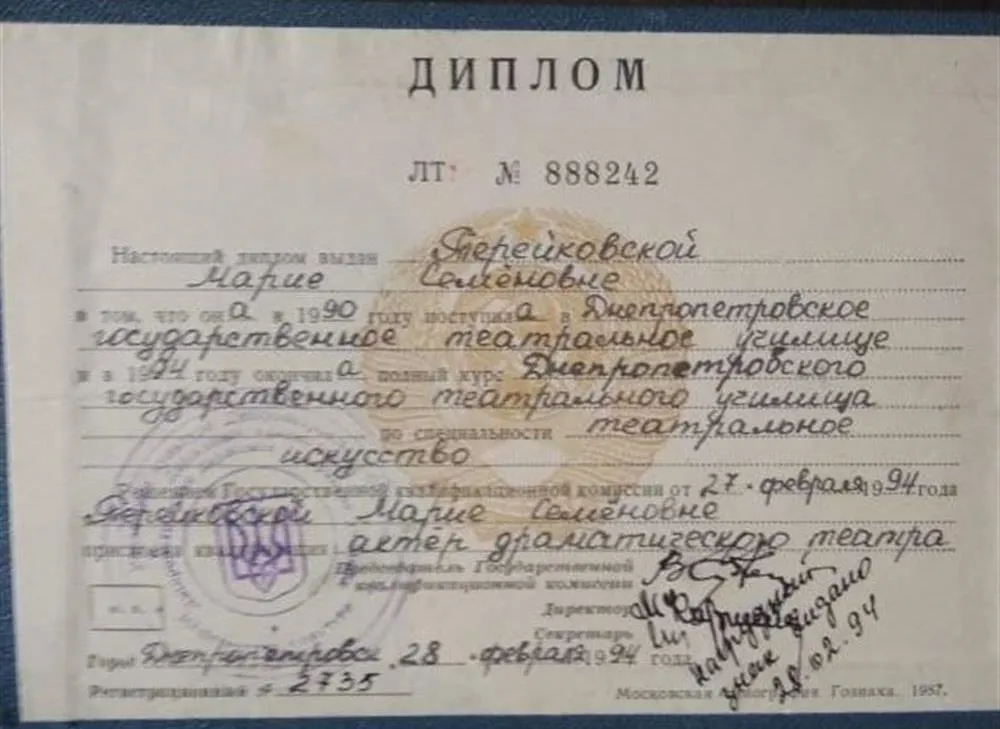 ДИПЛОМ
ЛТ № 888242
Настоящий диплом выдан Терейковской
Марие Семёновне
в том, что она в 1990 году поступила в Днепропетровское
государственное театральное училище
и в 1994 году окончила полный курс Днепропетровского
государственного театрального училища
по специальности театральное
искусство
Решением Государственной квалификационной комиссии от 27 февраля 1994 года
Терейковской Марие Семёновне
присвоена квалификация актер драматического театра
Председатель Государственной
квалификационной комиссии
Директор
Секретарь
нагрудный
знак выдано
28.02.94
М. П.
Город Днепропетровск 28 февраля 1994 года
Регистрационный № 2735
Московская типография Гознака. 1987.